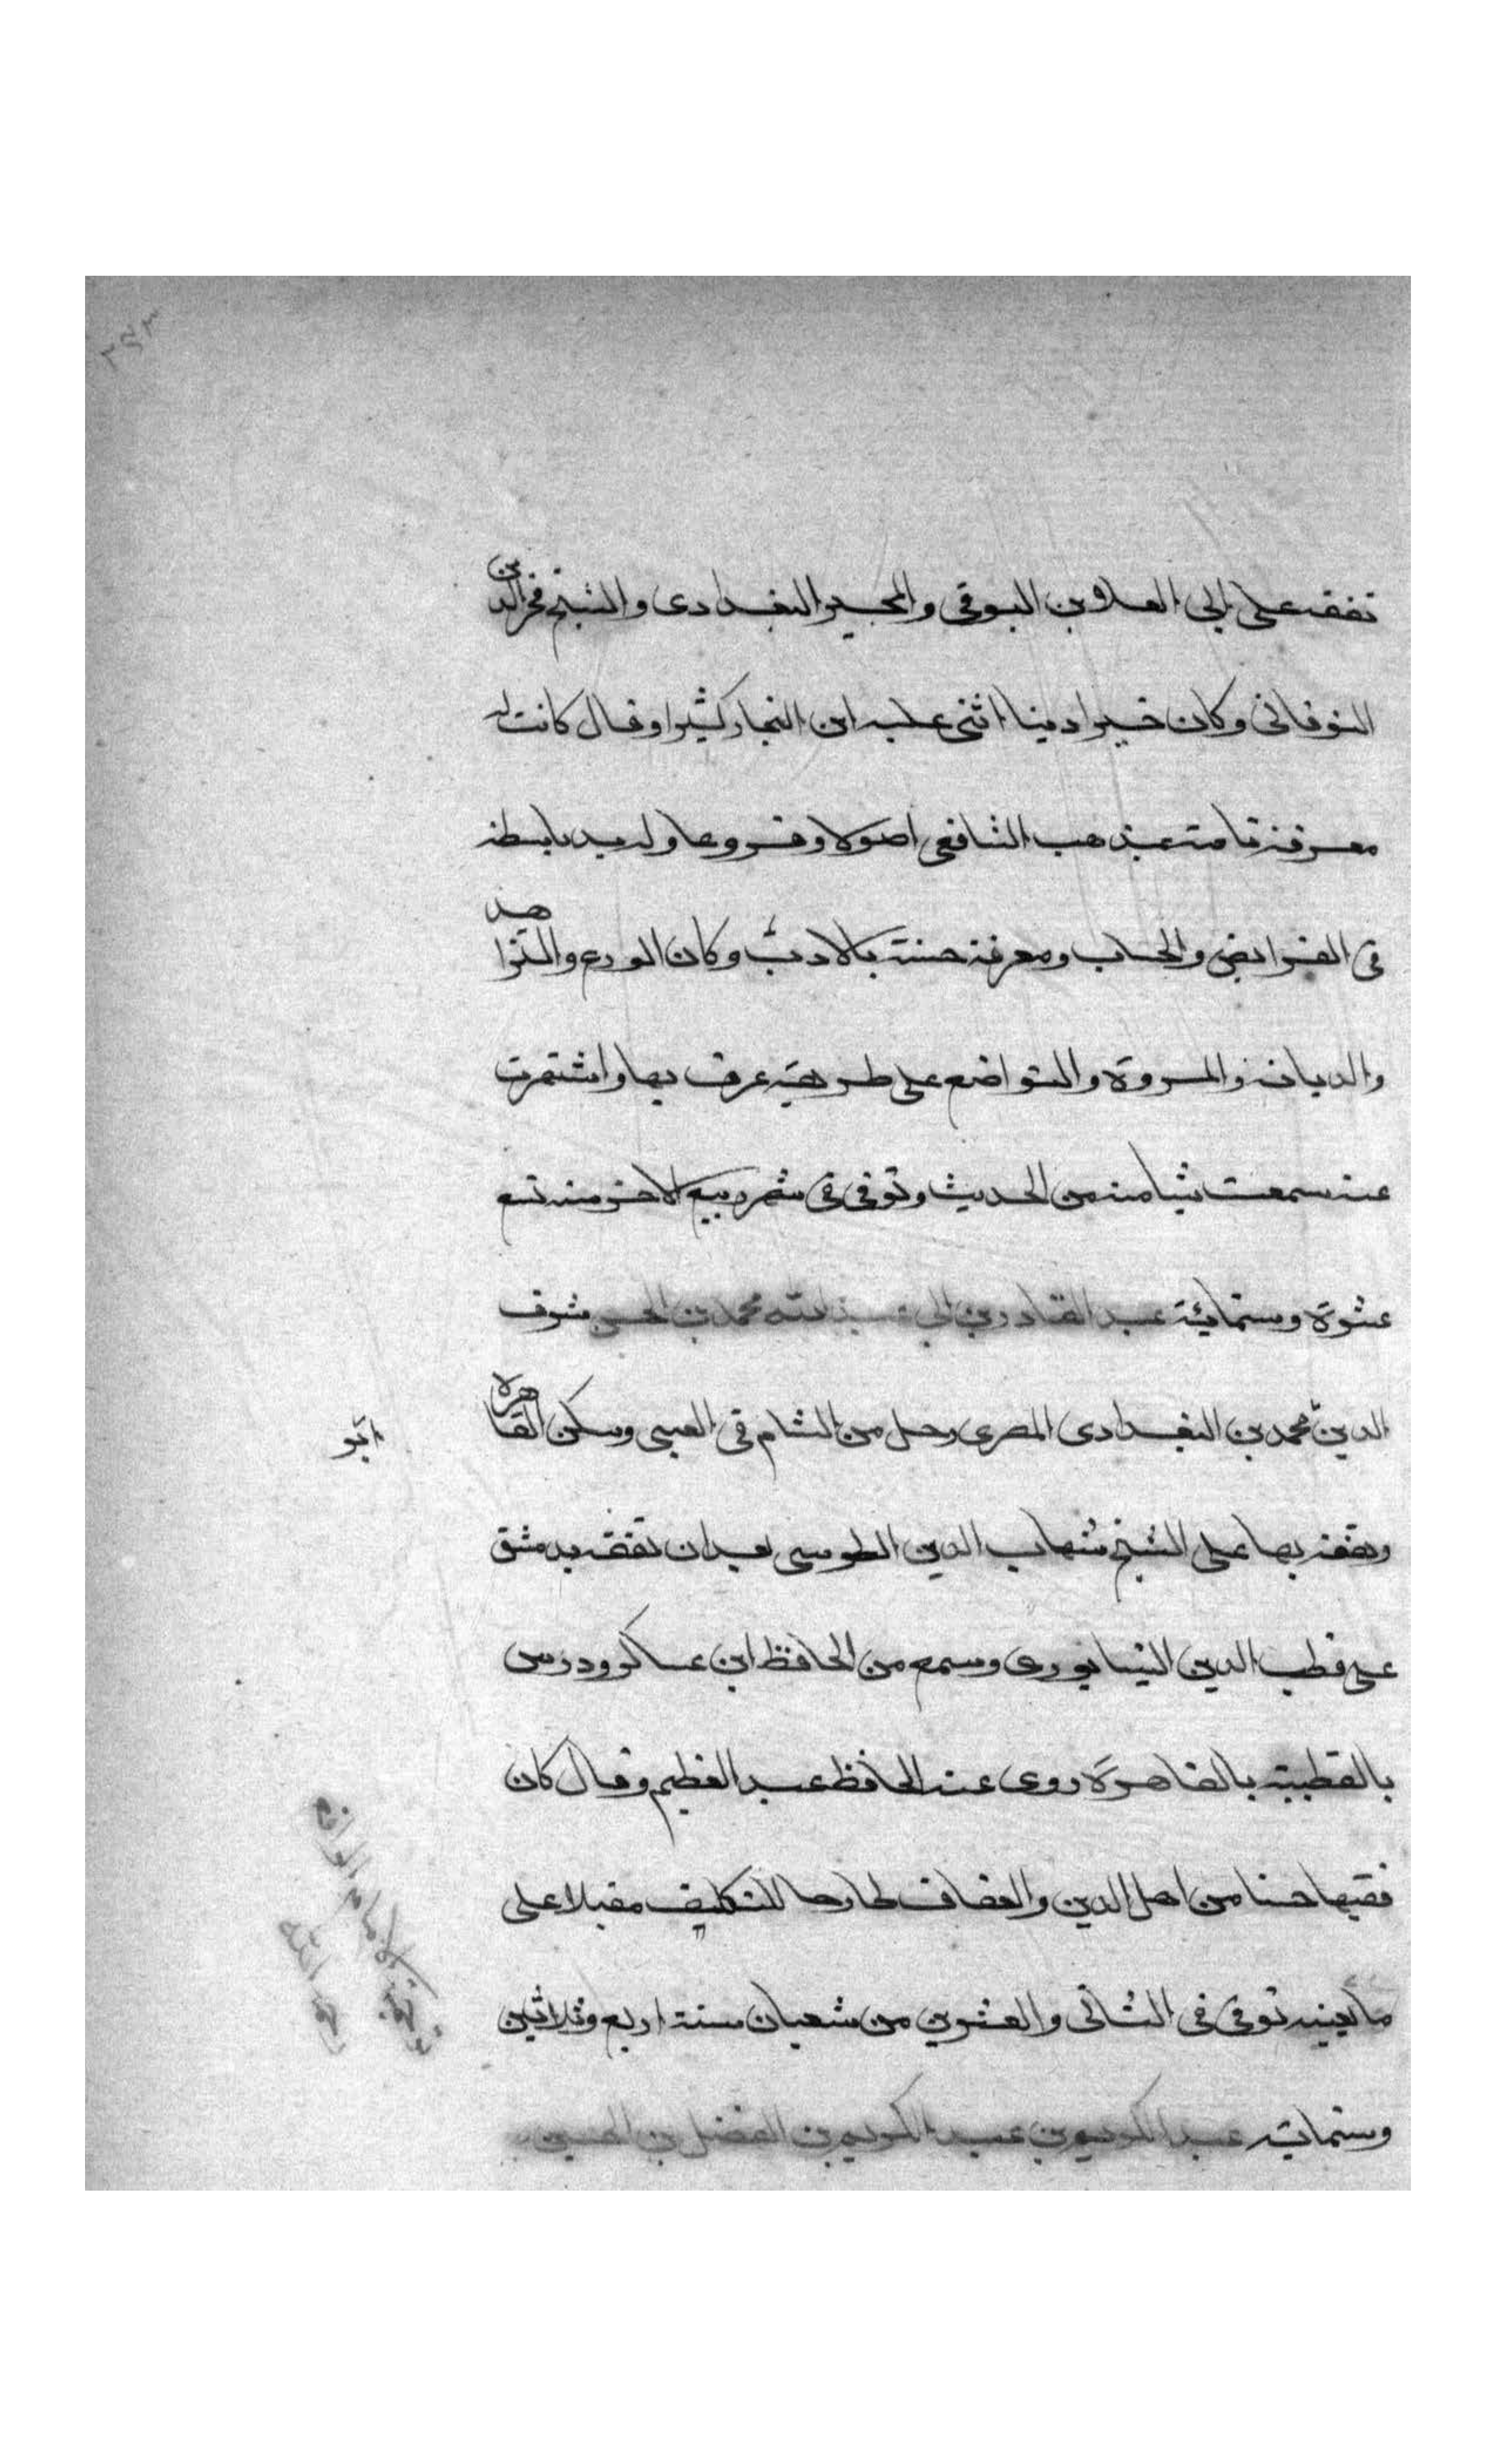 تفقه على ابى العلا بن البوقى والمجير البغدادى والشيخ فخر الدين
النوقانى وكان خيرا دينا اثنى عليه ابن النجار كثيرا وقال كانت له
معرفة تامة بمذهب الشافعى اصولا وفروعا وله يد باسطة
فى الفرايض والحساب ومعرفة حسنة بالادب وكان الورع والتزاهد
والديانة والمروة والتواضع على طريقة عرف بها واشتهرت
عنه سمعت شيا منه من الحديث وتوفى فى شهر ربيع الاخر سنة تسع
عشرة وستمائة عبد القادر بن ابى عبد الله محمد بن الحسن شرف
الدين محمد بن البغدادى المصرى رحل من الشام فى الصبى وسكن القاهرة
ابو
وتفقه بها على الشيخ شهاب الدين الطوسى بعد ان تفقه بدمشق
على قطب الدين النيسابورى وسمع من الحافظ ابن عساكر ودرس
بالقطبية بالقاهرة روى عنه الحافظ عبد العظيم وقال كان
فقيها حسنا من اهل الدين والعفاف طارحا للتكليف مقبلا على
ما يعنيه توفى فى الثانى والعشرين من شعبان سنة اربع وثلاثين
وستماية عبد الكريم بن عبد الكريم بن الفضل بن الحسين